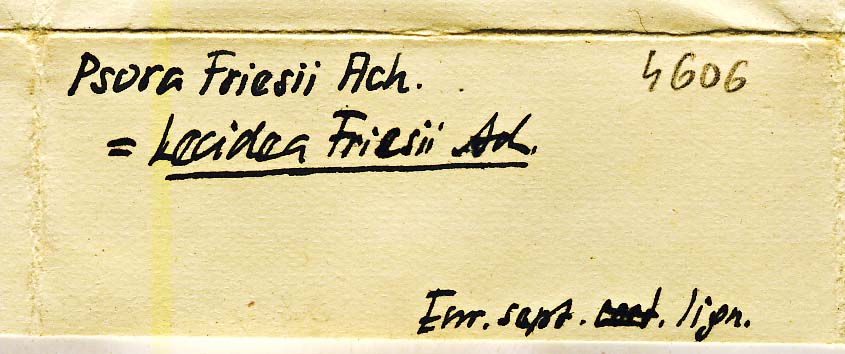 Psora Friesii Ach. 4606
= Lecidea Friesii Ach.
Eur. sept. cort. lign.